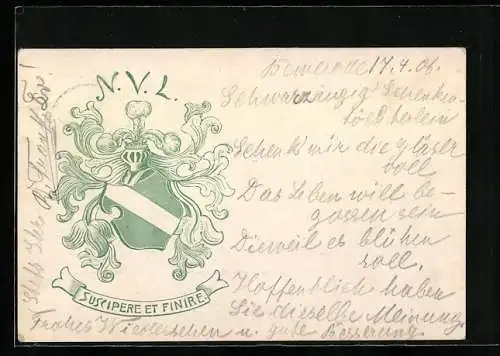 N.V.L.
SUSCIPERE ET FINIRE.
17.4.06.
Schwarzäugig Schenken-
Schenk' mir die gläser
voll
Das Leben will be-
gossen sein
Dieweil es blühen
soll.
Hoffentlich haben
Sie dieselbe Meinung.
Frohes Wiedersehen u. gute Besserung